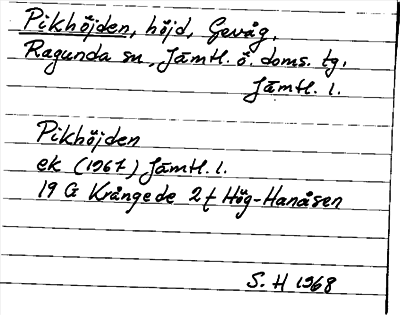 Pikhöjden, höjd, Gevåg,
Ragunda sn, Jämtl. ö. doms. tg,
Jämtl. l.
Pikhöjden
ek (1967) Jämtl. l.
19 G Krångede 2f Hög-Hanåsen
S. H 1968